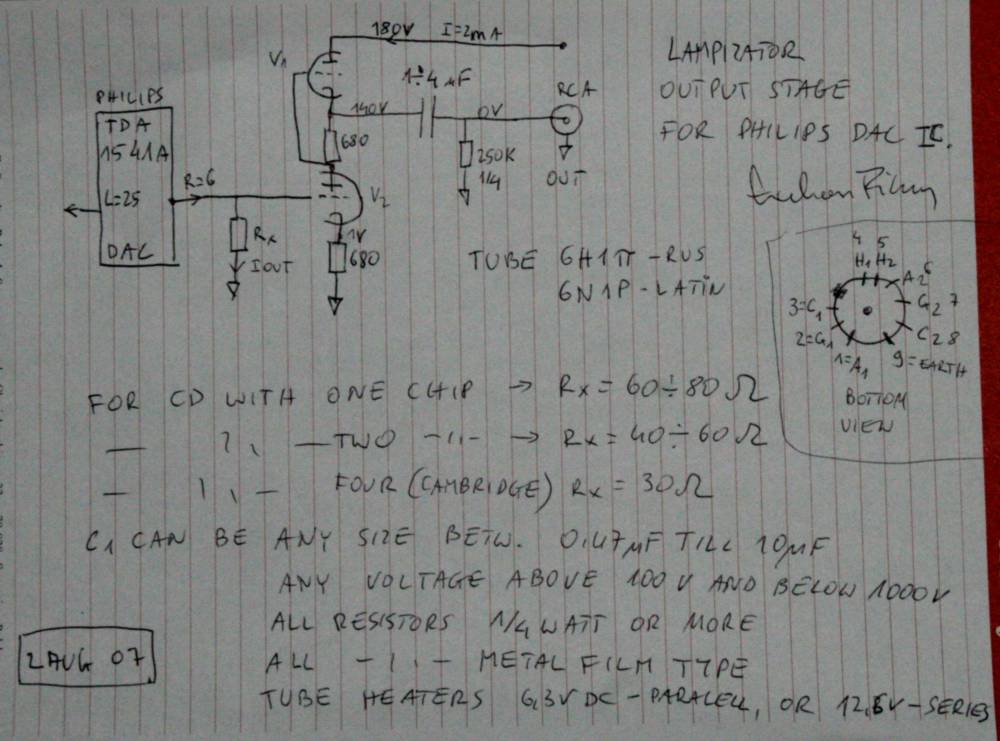 180V I=2mA
V1
1÷4 µF
LAMPIZATOR
OUTPUT STAGE
FOR PHILIPS DAC IC.
PHILIPS
TDA
1541A
L=25
DAC
R=6
140V
0V
RCA
680
250K
1/4
OUT
V2
Rx
IOUT
1V
680
TUBE 6H1П -RUS
6N1P-LATIN
4 5
H1 H2
A2 6
G2 7
C2 8
9=EARTH
1=A1
2=G1
3=C1
BOTTOM
VIEW
FOR CD WITH ONE CHIP → Rx = 60÷80 Ω
— " — TWO -"- → Rx = 40÷60 Ω
— " — FOUR (CAMBRIDGE) Rx = 30Ω
C1 CAN BE ANY SIZE BETW. 0,47µF TILL 10µF
ANY VOLTAGE ABOVE 100V AND BELOW 1000V
ALL RESISTORS 1/4 WATT OR MORE
ALL -"- METAL FILM TYPE
TUBE HEATERS 6,3V DC-PARALELL, OR 12,6V-SERIES
2 AUG 07